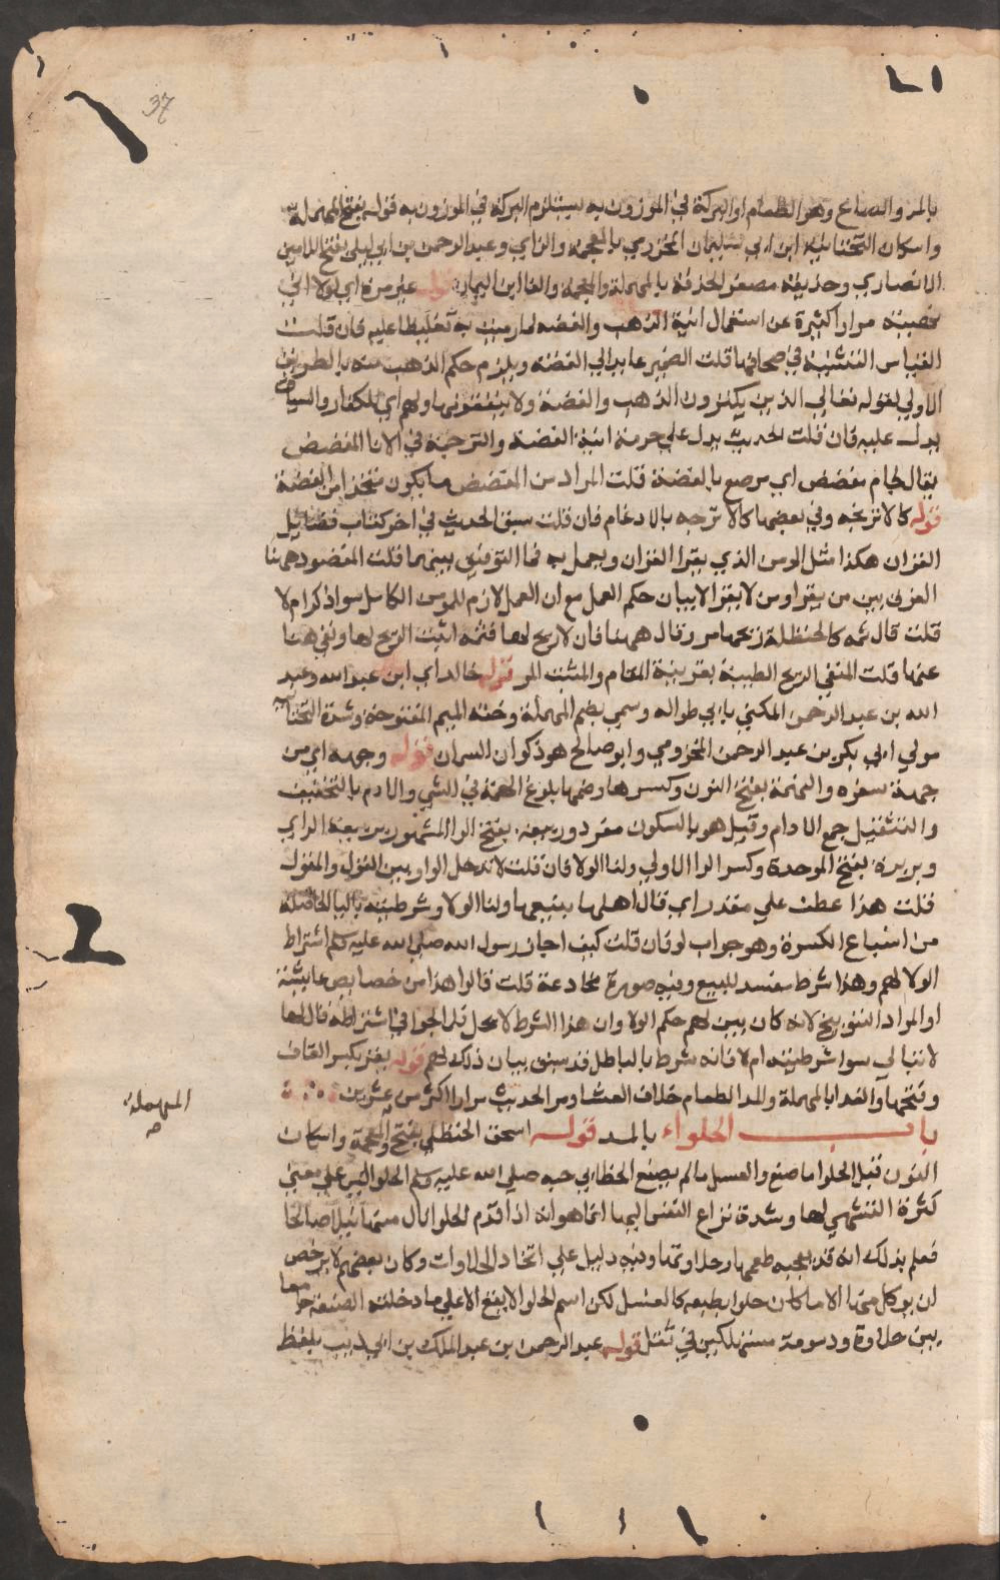 37
بالمد والصاع وهو الطعام او البركة في الموزون به يستلزم البركة في الموزون به قوله بفتح المهملة
واسكان التحتانية ابن ابي سليمان المخزومي بالمعجمة والزاي وعبد الرحمن بن ابي ليلى بفتح اللامين
الانصاري وحذيفة مصغر الحذفة بالمهملة والمعجمة والفا ابن اليمان قوله غير مرة اي لولا اني
نهيته مرارا كثيرة عن استعمال انية الذهب والفضة لما رميت به تغليظا عليه فان قلت
القياس التثنية في صحافها قلت الضمير عايد الي الفضة ويلزم حكم الذهب منه بالطريق
الاولي لقوله تعالي الذين يكنزون الذهب والفضة ولا ينفقونها ولهم اي للكفار والسياق
يدل عليه فان قلت الحديث يدل علي حرمة انية الفضة والترجمة في الانا المفضض
يقال لجام مفضض اي مرصع بالفضة قلت المراد من المفضض ما يكون متخذا من الفضة
قوله كالاترنجة وفي بعضها كالاترجة بالادغام فان قلت سبق الحديث في اخر كتاب فضائل
القران هكذا مثل المومن الذي يقرا القران ويعمل به فما التوفيق بينهما قلت المقصود ههنا
الفرق بين من يقرا ومن لا يقرا لا بيان حكم العمل مع ان العمل لازم للمومن الكامل سوا ذكر ام لا
قلت قال ثمه كالحنظلة ريحها مر وقال ههنا فان لا ريح لها فثمه اثبت الريح لها ونفي هنا
عنها قلت المنفي الريح الطيبة بقرينة المقام والمثبت المر قوله خالد اي ابن عبد الله وعبد
الله بن عبد الرحمن المكني بابي طواله وسمي بضم المهملة وخفة الميم المفتوحة وشدة التحتانية
مولي ابي بكر بن عبد الرحمن المخزومي وابو صالح هو ذكوان السمان قوله وجهه اي من
جهة سفره والنهمة بفتح النون وكسرها وضمها بلوغ الهمة في الشي والادم بالتخفيف
والتثقيل جمع الادام وقيل هو بالسكون مفرد وربيعة بفتح الرا المشهور بربيعة الراي
وبريرة بفتح الموحدة وكسر الرا الاولي ولنا الولا فان قلت لا تدخل الواو بين القول والمقول
قلت هذا عطف علي مقدر اي قال اهلها نبيعها ولنا الولا وشرطتيه باليا الحاصلة
من اشباع الكسرة وهو جواب لو فان قلت كيف اجاز رسول الله صلي الله عليه وسلم اشتراط
الولا لهم وهذا شرط مفسد للبيع وفيه صورة مخادعة قلت قالوا هذا من خصايص عايشة
او المراد التوبيخ لانه كان يبين لهم حكم الولا وان هذا الشرط لا يحل فلما لجوا في اشتراطه قال لها
لا تبالي سوا شرطتيه ام لا فانه شرط باطل قد سبق بيان ذلك لهم قوله يقر بكسر القاف
وفتحها والغدا بالمهملة والمد الطعام خلاف العشا ومر الحديث مرارا اكثر من عشرين
المهملة
صح
باب الحلواء بالمد قوله اسحق الحنظلي بفتح المعجمة واسكان
النون قيل الحلوا ما صنع والعسل ما لم يصنع الخطابي حبه صلي الله عليه وسلم الحلوا ليس علي معني
كثرة التشهي لها وشدة نزاع النفس اليها انما هو انه اذا قدم الحلوا نال منها نيلا صالحا
فعلم بذلك انه قد يعجبه طعمها وحلاوتها وفيه دليل علي اتخاذ الحلاوات وكان بعضهم لا يرخص
ان يوكل منها الا ما كان حلوا بطبعه كالعسل لكن اسم الحلوا لا يقع الا علي ما دخلته الصنعة جامعا
بين حلاوة ودسومة مستهلكين في ثفل قوله عبد الرحمن بن عبد الملك بن ابي ذيب بلفظ